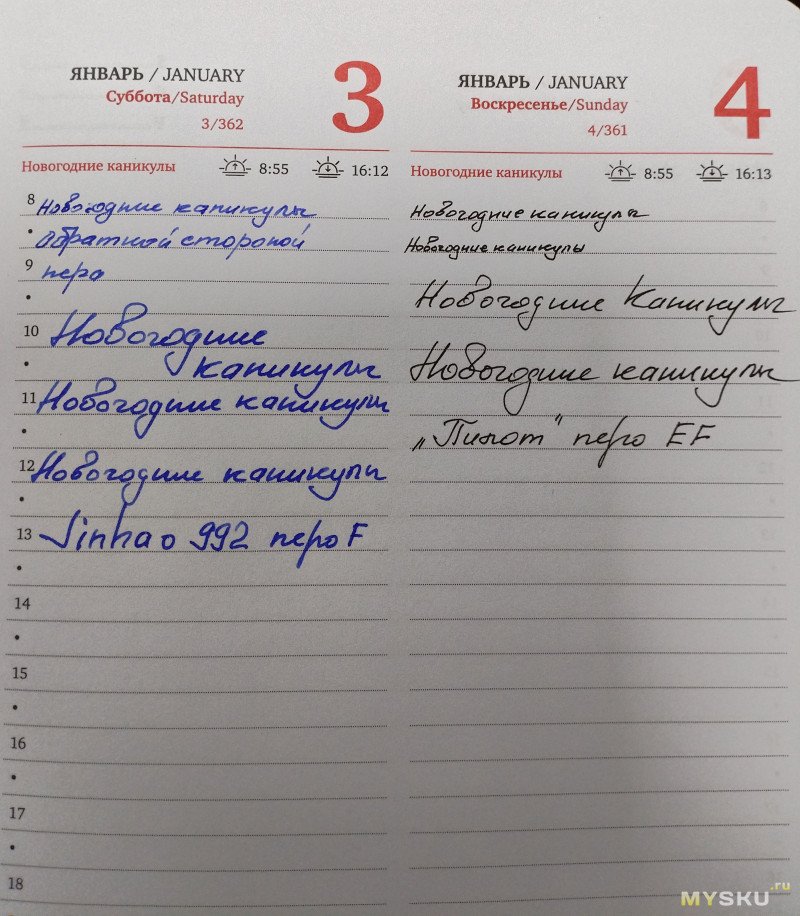 ЯНВАРЬ / JANUARY
Суббота/Saturday
3/362
3
Новогодние каникулы 8:55 16:12
8 Новогодние каникулы
обратной стороной
9 пера
10 Новогодние
каникулы
11 Новогодние каникулы
12 Новогодние каникулы
13 Jinhao 992 перо F
14
15
16
17
18
ЯНВАРЬ / JANUARY
Воскресенье/Sunday
4/361
4
Новогодние каникулы 8:55 16:13
Новогодние каникулы
Новогодние каникулы
Новогодние Каникулы
Новогодние каникулы
„Пилот" перо EF
MYSKU.ru